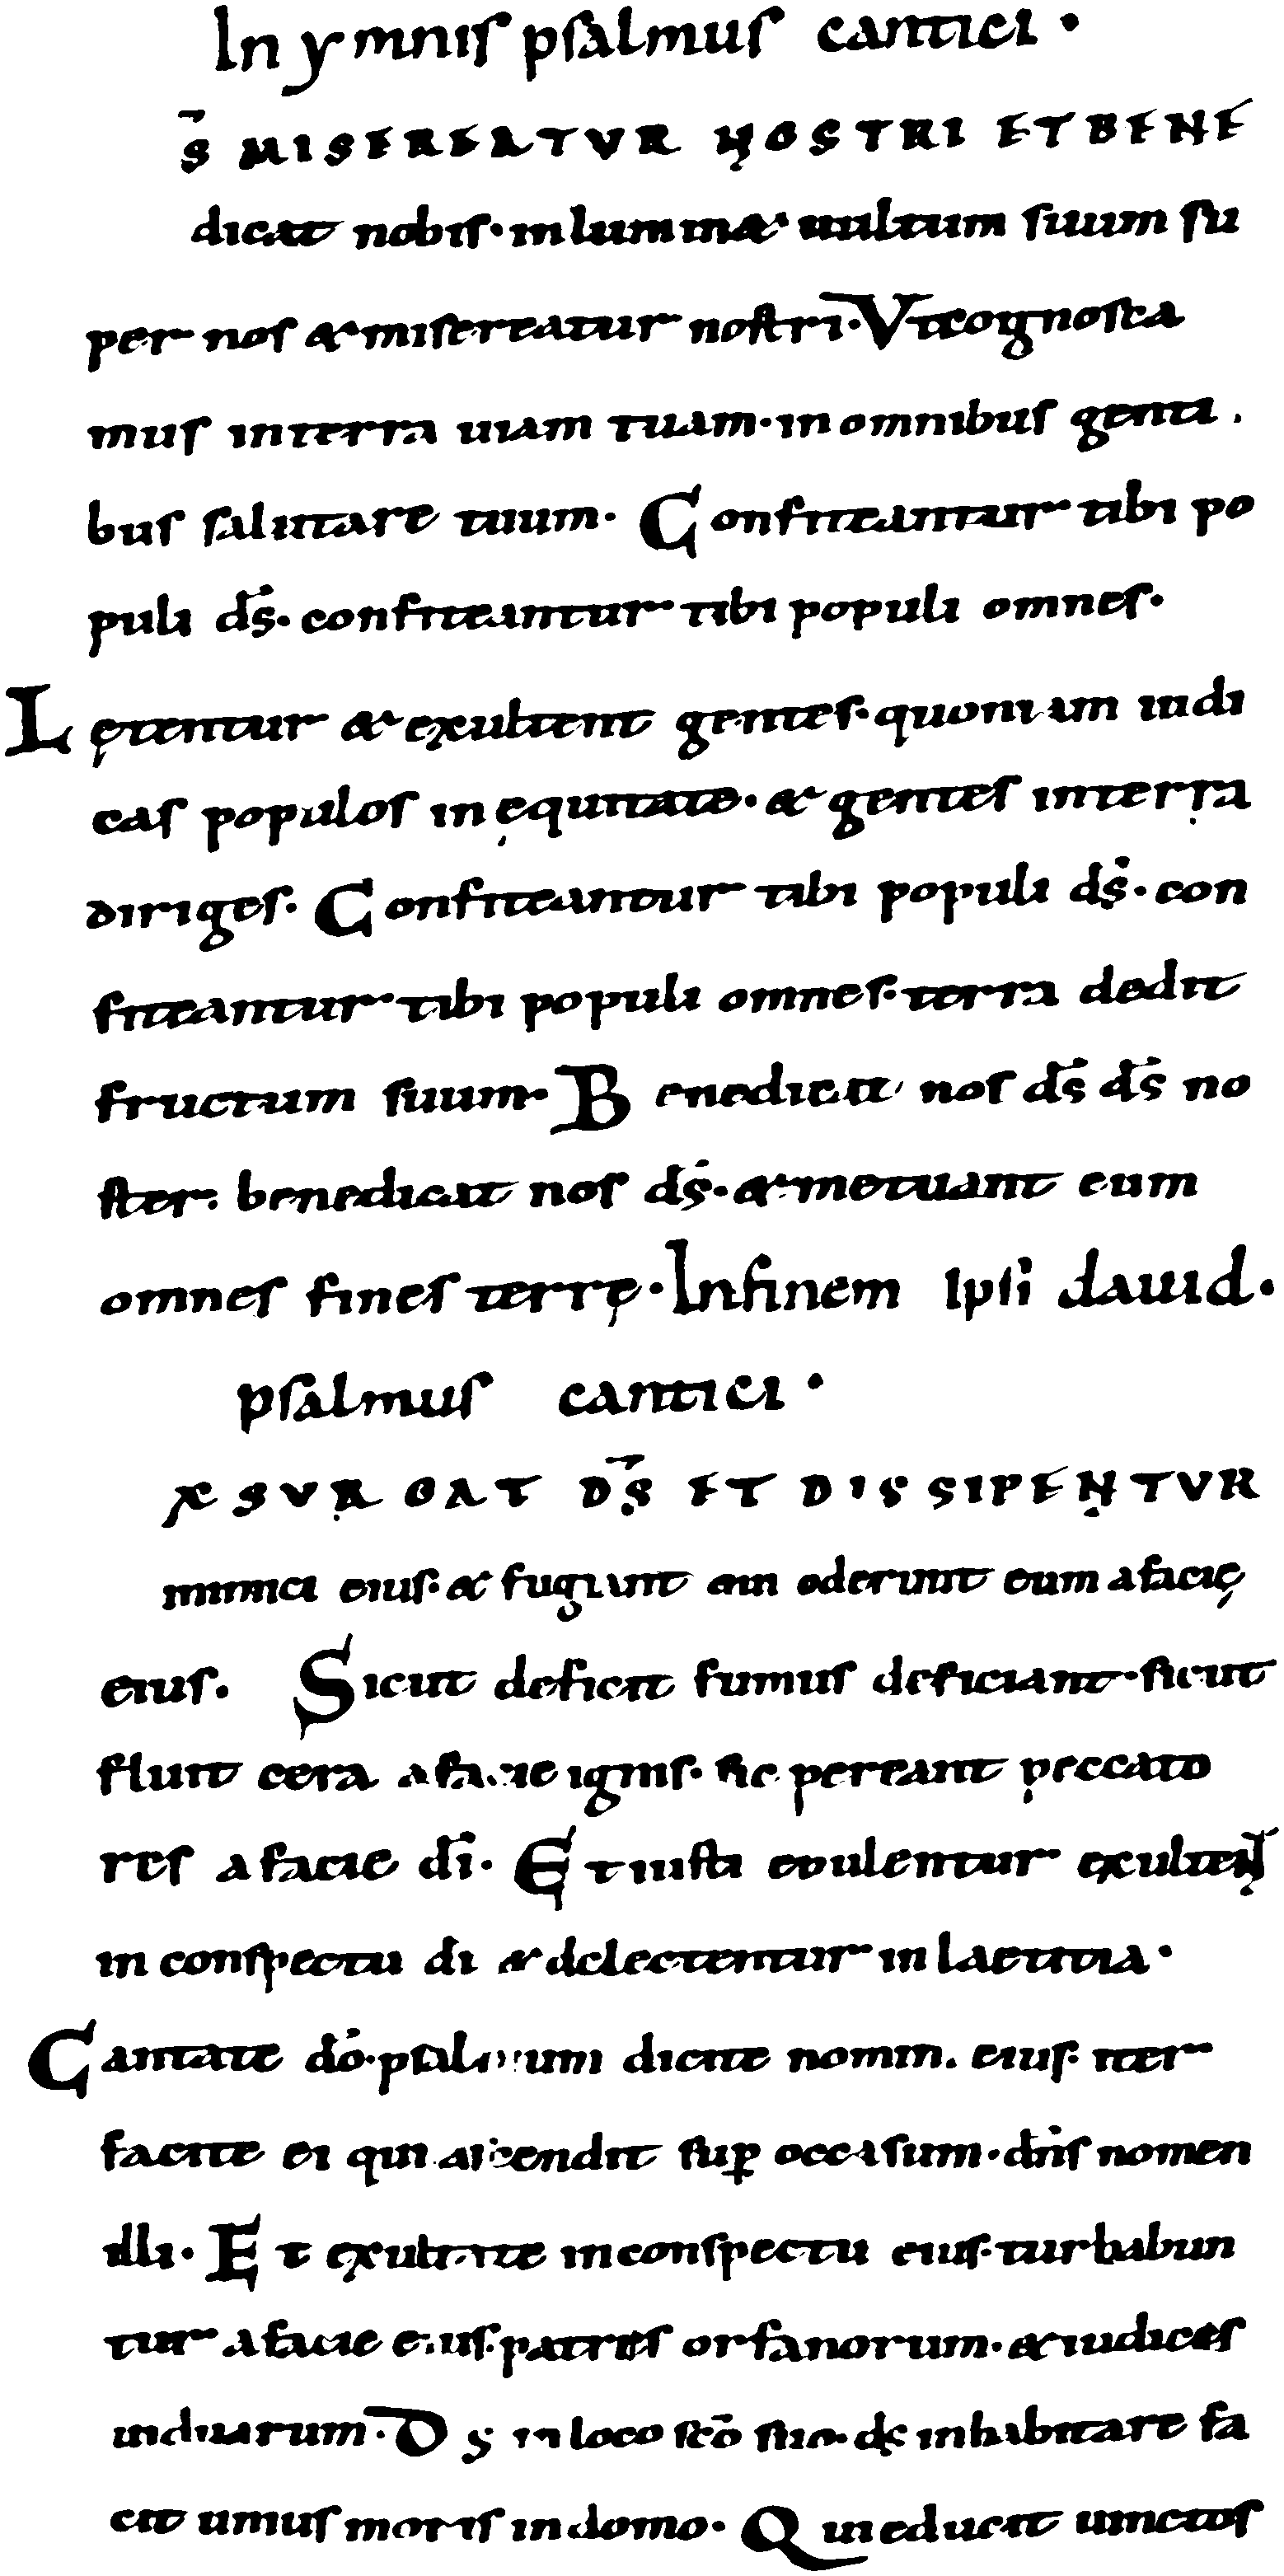 In ymnis psalmus cantici ·
s̄ MISEREATVR NOSTRI ET BENE
dicat nobis · inluminæt uultum suum su
per nos & misereatur nostri · Vt cognosca
mus in terra uiam tuam · in omnibus genti
bus salutare tuum · Confiteantur tibi po
puli d̄s · confiteantur tibi populi omnes ·
Lętentur & exultent gentes · quoniam iudi
cas populos in ęquitate · & gentes in terra
diriges · Confiteantur tibi populi d̄s · con
fiteantur tibi populi omnes · terra dedit
fructum suum · Benedicat nos d̄s d̄s no
ster · benedicat nos d̄s · & metuant eum
omnes fines terrę · In finem Ipsi dauid ·
psalmus cantici ·
EXSVRGAT D̄S ET DISSIPENTVR
inimici eius · & fugiunt qui oderunt eum a facię
eius · Sicut deficit fumus deficiant · sicut
fluit cera a facie ignis · sic pereant peccato
res a facie d̄i · Et iusti epulentur exulteN̄
in conspectu d̄i & delectentur in laetitia ·
Cantate d̄o · psalmum dicite nomini eius · iter
facite ei qui ascendit sup̱ occasum · dn̄s nomen
illi · Et exultate in conspectu eius · turbabun
tur a facie eius · patres orfanorum · & iudices
uiduarum · Ds in loco sc̄o suo · ds inhabitare fa
cit unius moris in domo · Qui educit uinctos